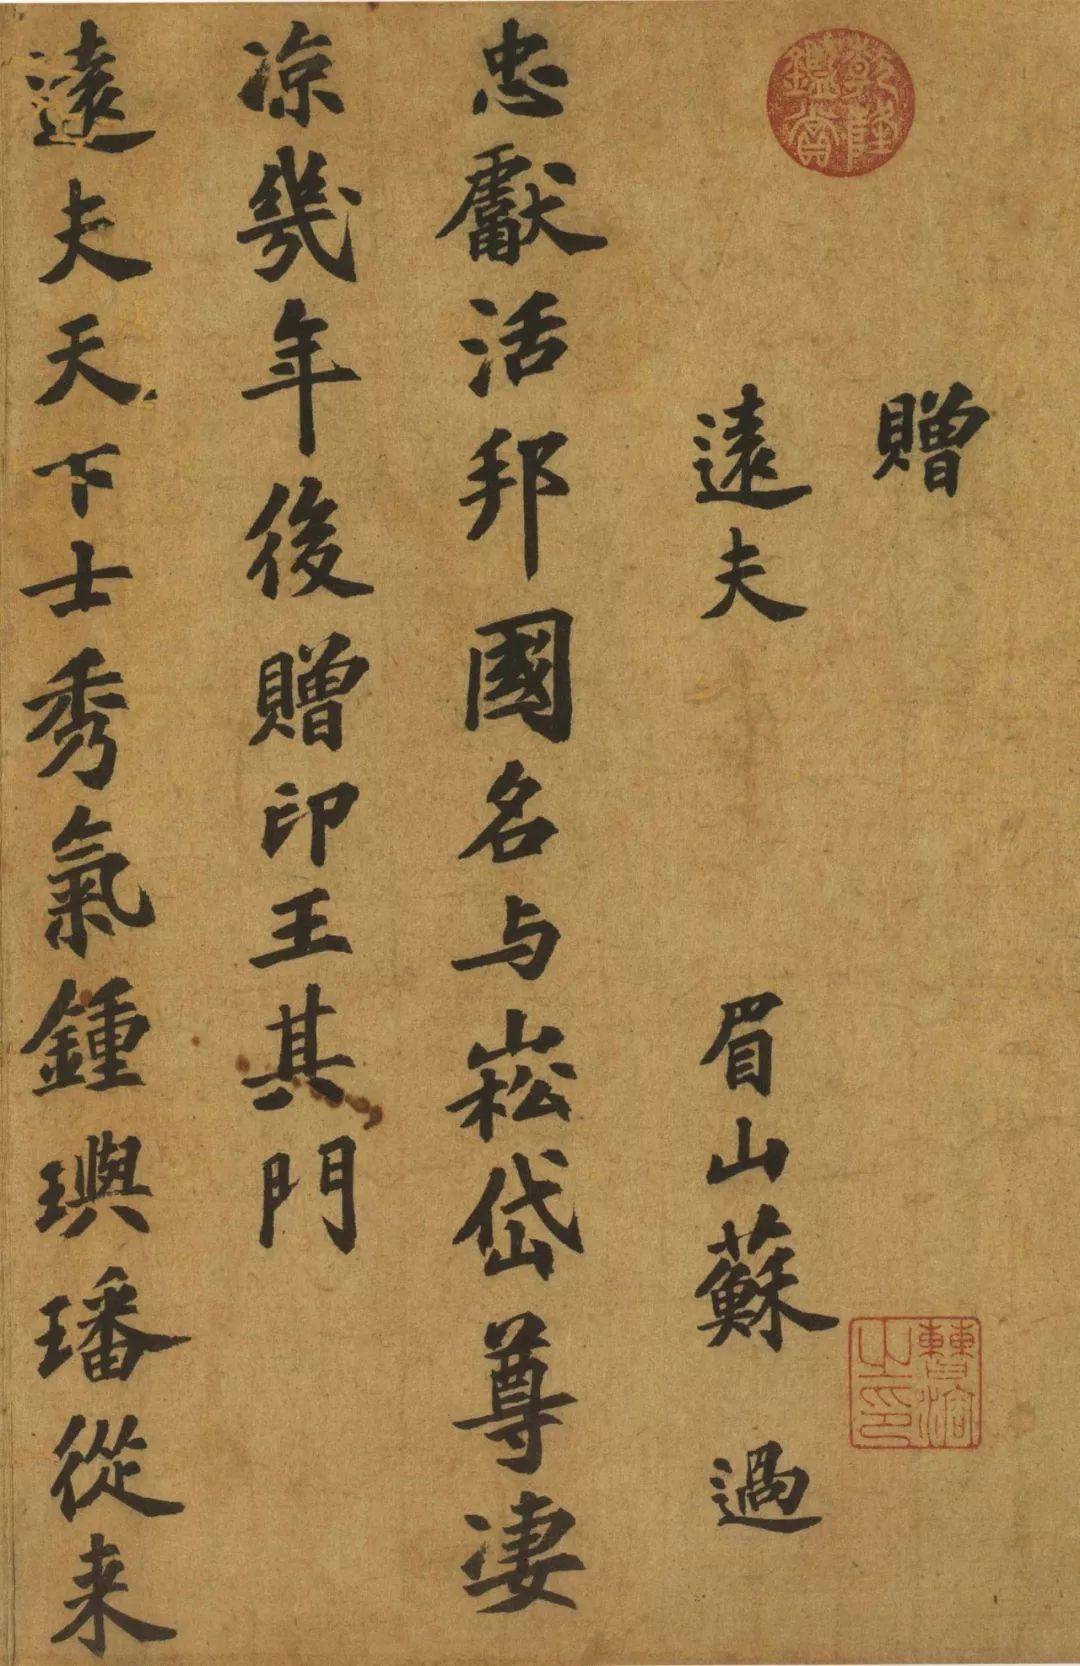 贈
遠夫　眉山蘇　過
忠獻活邦國名与崧岱尊凄
凉幾年後贈印王其門
遠夫天下士秀氣鍾璵璠從来
乾隆鑑賞
曹溶之印